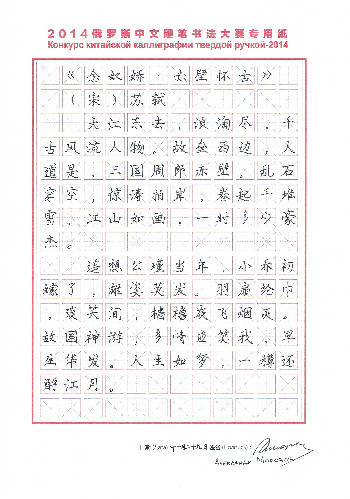 2014俄罗斯中文硬笔书法大赛专用纸
Конкурс китайской каллиграфии твердой ручкой-2014
《念奴娇·赤壁怀古》
（宋）苏轼
大江东去，浪淘尽，千
古风流人物。故垒西边，人
道是，三国周郎赤壁。乱石
穿空，惊涛拍岸，卷起千堆
雪。江山如画，一时多少豪
杰。
遥想公瑾当年，小乔初
嫁了，雄姿英发。羽扇纶巾
，谈笑间，樯橹灰飞烟灭。
故国神游，多情应笑我，早
生华发。人生如梦，一樽还
酹江月。
Александр